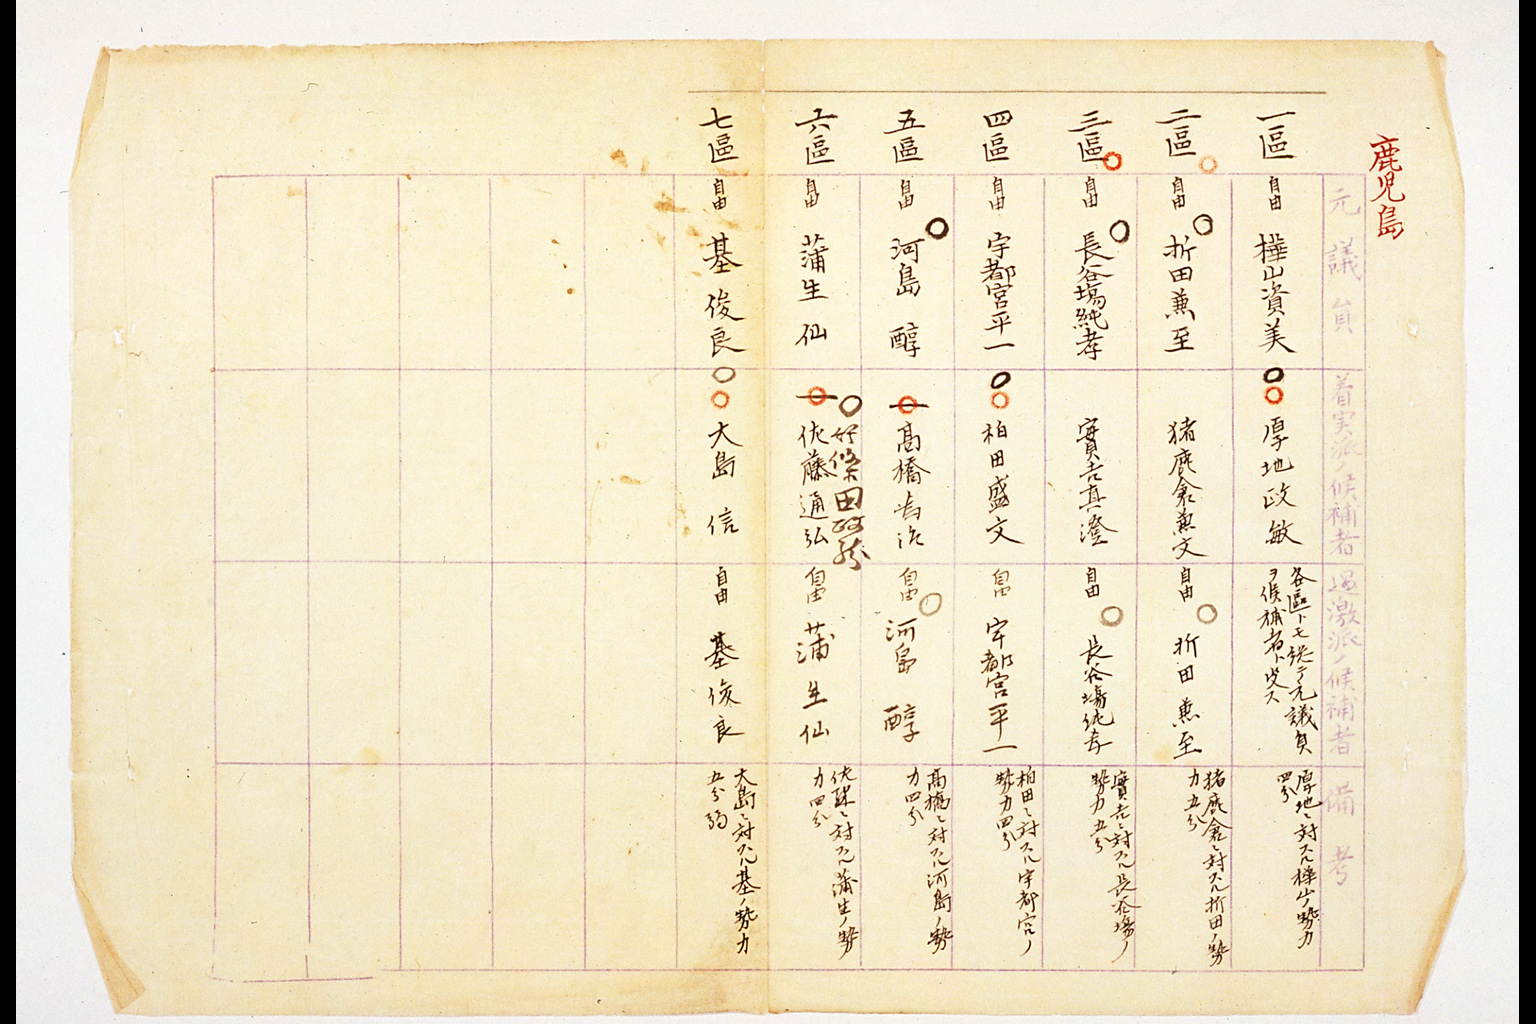 鹿児島
元議員
着実派ノ候補者
過激派ノ候補者
備考
一區
自由
樺山資美
厚地政敏
各區トモ総テ元議員
ヲ候補者ト・ス
厚地ニ対スル樺山ノ勢力
四分
二區
自由
折田兼至
猪鹿倉兼文
自由
折田兼至
猪鹿倉ニ対スル折田ノ勢
力五分
三區
自由
長谷場純孝
實吉真澄
自由
長谷場純孝
實吉ニ対スル長谷場ノ
勢力五分
四區
自由
宇都宮平一
柏田盛文
自由
宇都宮平一
柏田ニ対スル宇都宮ノ
勢力四分
五區
自由
河島醇
高橋為治
自由
河島醇
高橋ニ対スル河島ノ勢
力四分
六區
自由
蒲生仙
條田政
佐藤通弘
自由
蒲生仙
佐藤ニ対スル蒲生ノ勢
力四分
七區
自由
基俊良
大島信
自由
基俊良
大島ニ対スル基ノ勢力
五分弱